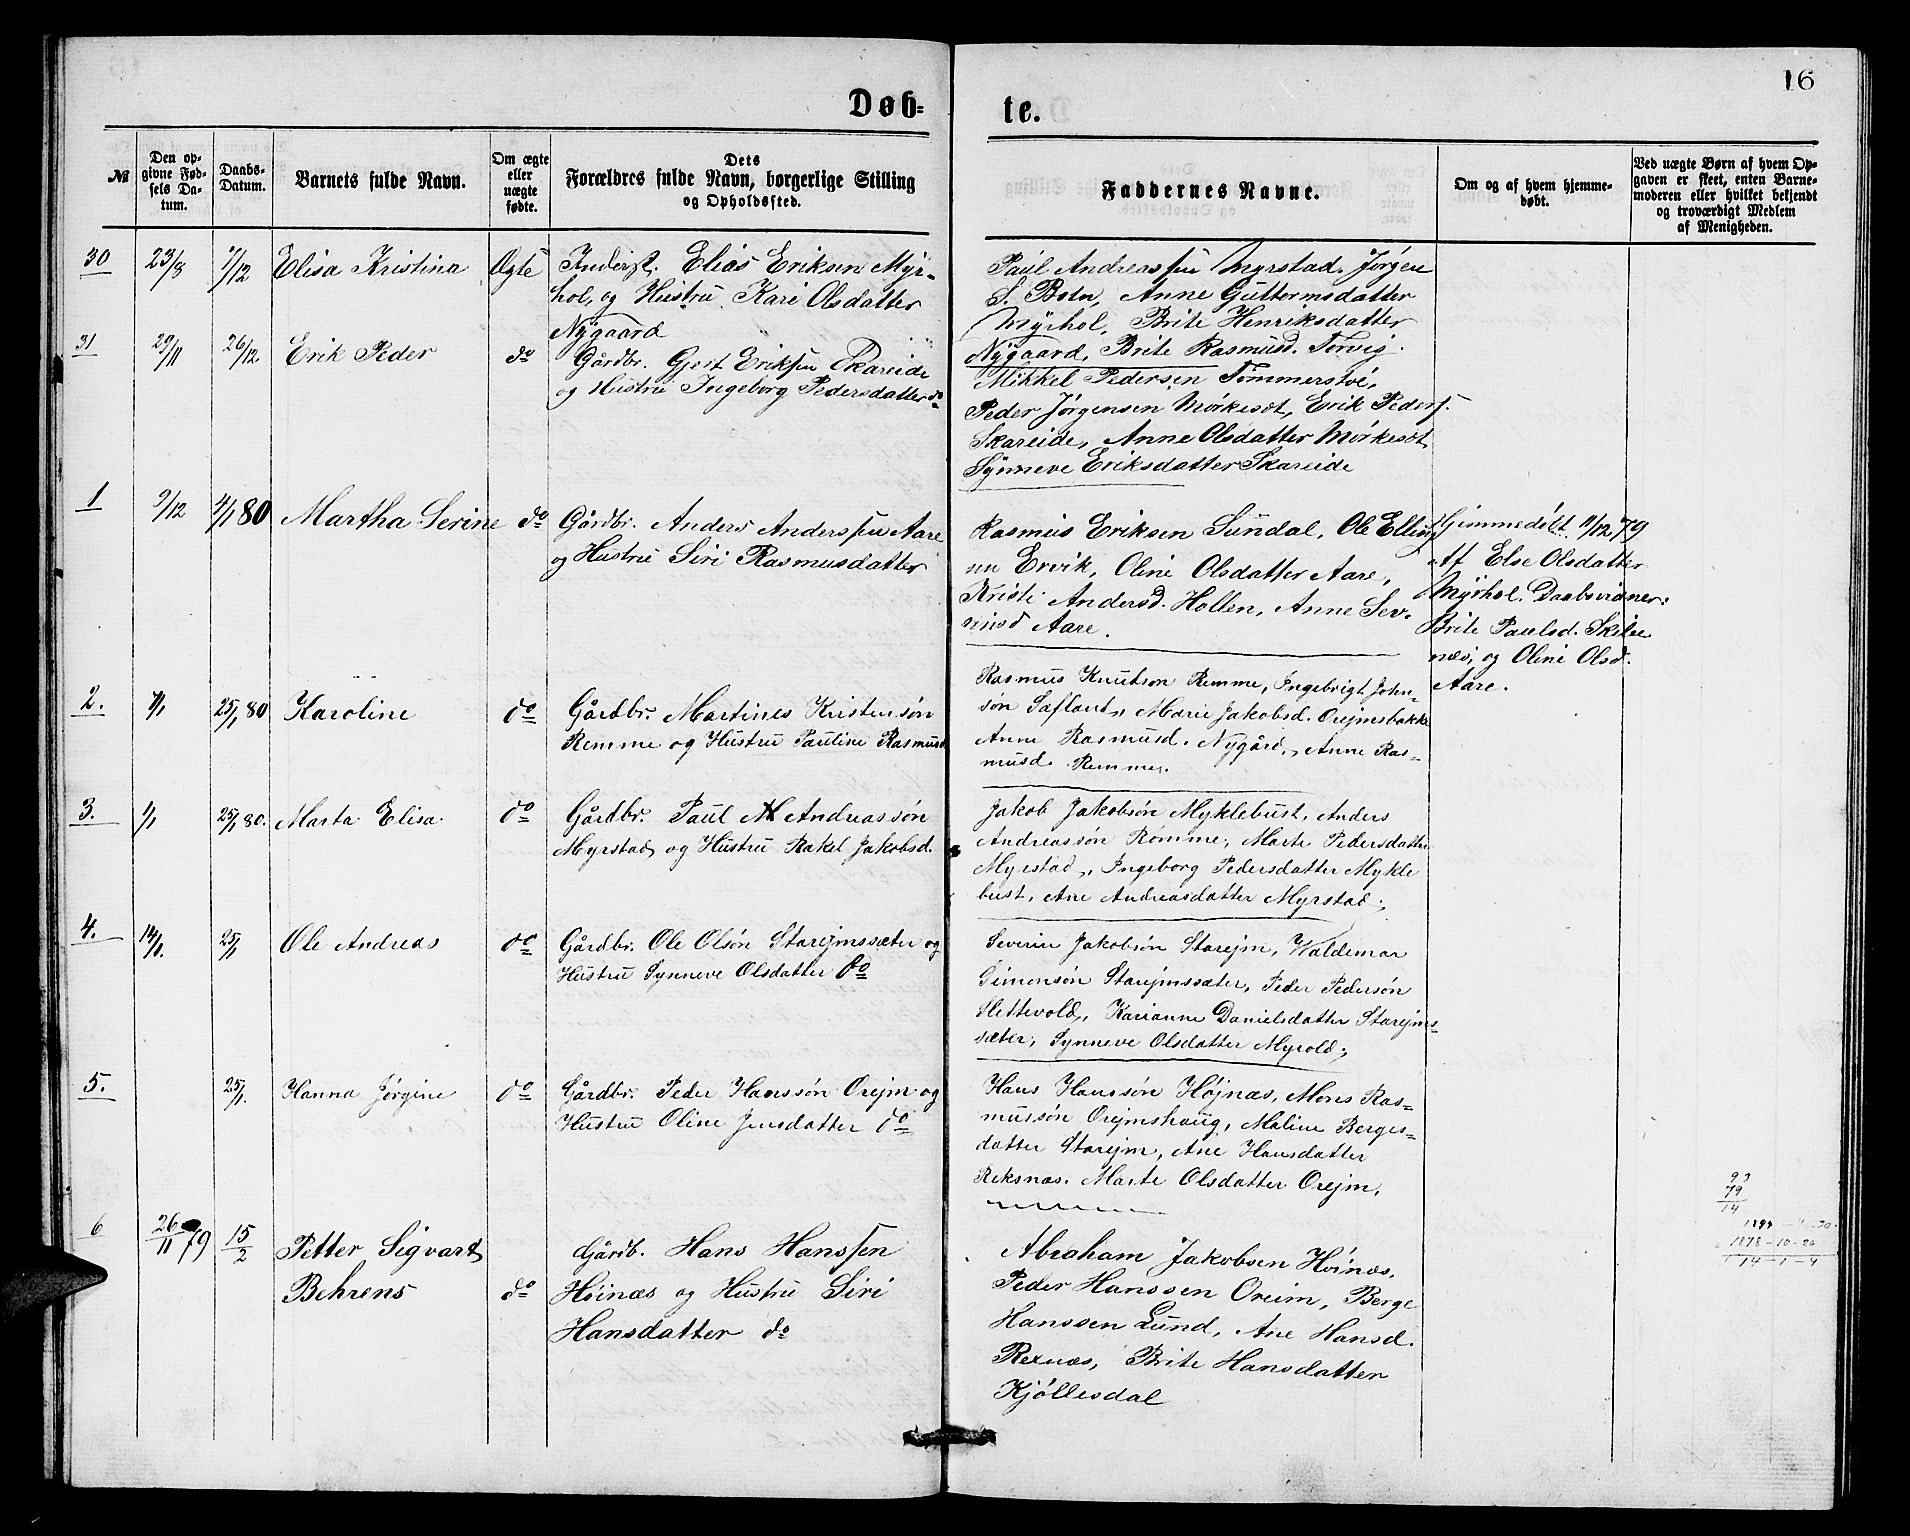 16
Døb-
te.
№
Den op-
givne Fød-
sels Da-
tum.
Daabs-
Datum.
Barnets fulde Navn.
Om ægte
eller
uægte
fødte.
Dets
Forældres fulde Navn, borgerlige Stilling
og Opholdssted.
Faddernes Navne.
Om og af hvem hjemme-
døbt.
Ved uægte Børn af hvem Op-
gaven er skeet, enten Barne-
moderen eller hvilket bekjendt
og troværdigt Medlem
af Menigheden.
30
23/8
7/12
Elisa Kristina
Ægte
Inderst. Elias Eriksen Myr-
hol, og Hustru Kari Olsdatter
Nygaard
Paul Andreassen Myrstad. Jørgen
S. Botn, Anne Guttermsdatter
Myrhol, Brite Henriksdatter
Nygaard, Brite Rasmusd. Torvig.
31
29/11
26/12
Erik Peder
do
Gårdbr. Gjert Eriksen Skareide
og Hustru Ingeborg Pedersdatter do
Mikkel Pedersen Tømmerstøl,
Peder Jørgensen Mørkesdt, Erik Peders.
Skareide, Anne Olsdatter Mørkesdt
Synneve Eriksdatter Skareide
1
9/12
4/1 80
Martha Serine
do
Gårdbr. Anders Anderssen Aare
og Hustru Siri Rasmusdatter
Rasmus Eriksen Sundal, Ole Elling
sen Ervik, Oline Olsdatter Aare,
Kristi Andersd. Hollen, Anne Sev-
rinsd Aare.
Hjimmedøbt 11/12 79
Af Else Olsdatter
Myrhol. Daabsvidner:
Brite Paulsd. Skilbe
næs, og Oline Olsd.
Aare.
2.
7/1
25/1 80
Karoline
do
Gårdbr. Martines Kristensøn
Remme og Hustru Pauline Rasmusd
Rasmus Knutson Remme, Ingebrigt John-
søn Saflant, Marie Jakobsd. Orejmsbakke
Anne Rasmusd. Nygård, Anne Ras-
musd. Remme.
3.
1/1
25/1 80.
Marta Elisa.
do
Gårdbr. Paul M Andreassøn
Myrstad, og Hustru Rakel Jakobsd.
Jakob Jakobsøn Myklebust, Anders
Andreassøn Rømme, Marte Pedersdatter
Myrstad, Ingeborg Pedersdatter Mykle
bust, Ane Andreasdatter Myrstad;
4.
14/1.
25/1
Ole Andreas
do
Gårdbr. Ole Olsøn Starejmssæter og
Hustru Synneve Olsdatter do
Severin Jakobsøn Starejm, Waldemar
Simonsøn Starejmssæter, Peder Pedersøn
Slettevold, Karianne Danielsdatter Starejms-
sæter, Synneve Olsdatter Myrold;
5.
25/1.
Hanna Jørgine
do
Gårdbr. Peder Hanssøn Orejm og
Hustru Oline Jensdatter do
Hans Hanssøn Højnæs, Mons Ras-
mussøn Orejmshaug, Maline Berges-
datter Starejm, Ane Hansdatter
Reksnæs. Marte Olsdatter Orejm.
6
26/11 79
15/2
Petter Sigvard
Behrens
do
Gårdb. Hans Hanssen
Høinæs og Hustru Siri
Hansdatter do
Abraham Jakobsen Høinæs,
Peder Hanssen Oreim, Berge
Hanssen Lund, Ane Hansd.
Rexnæs, Brite Hansdatter
Kjøllesdal
93
79
14
1878-10-26
14-1-4